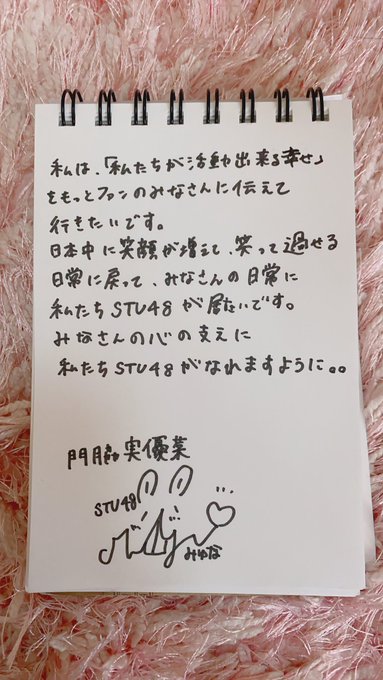 私は、「私たちが活動出来る幸せ」
をもっとファンのみなさんに伝えて
行きたいです。
日本中に笑顔が増えて、笑って過せる
日常に戻って、みなさんの日常に
私たちSTU48が居たいです。
みなさんの心の支えに
私たちSTU48がなれますように。。
門脇実優菜
STU48
みゆな